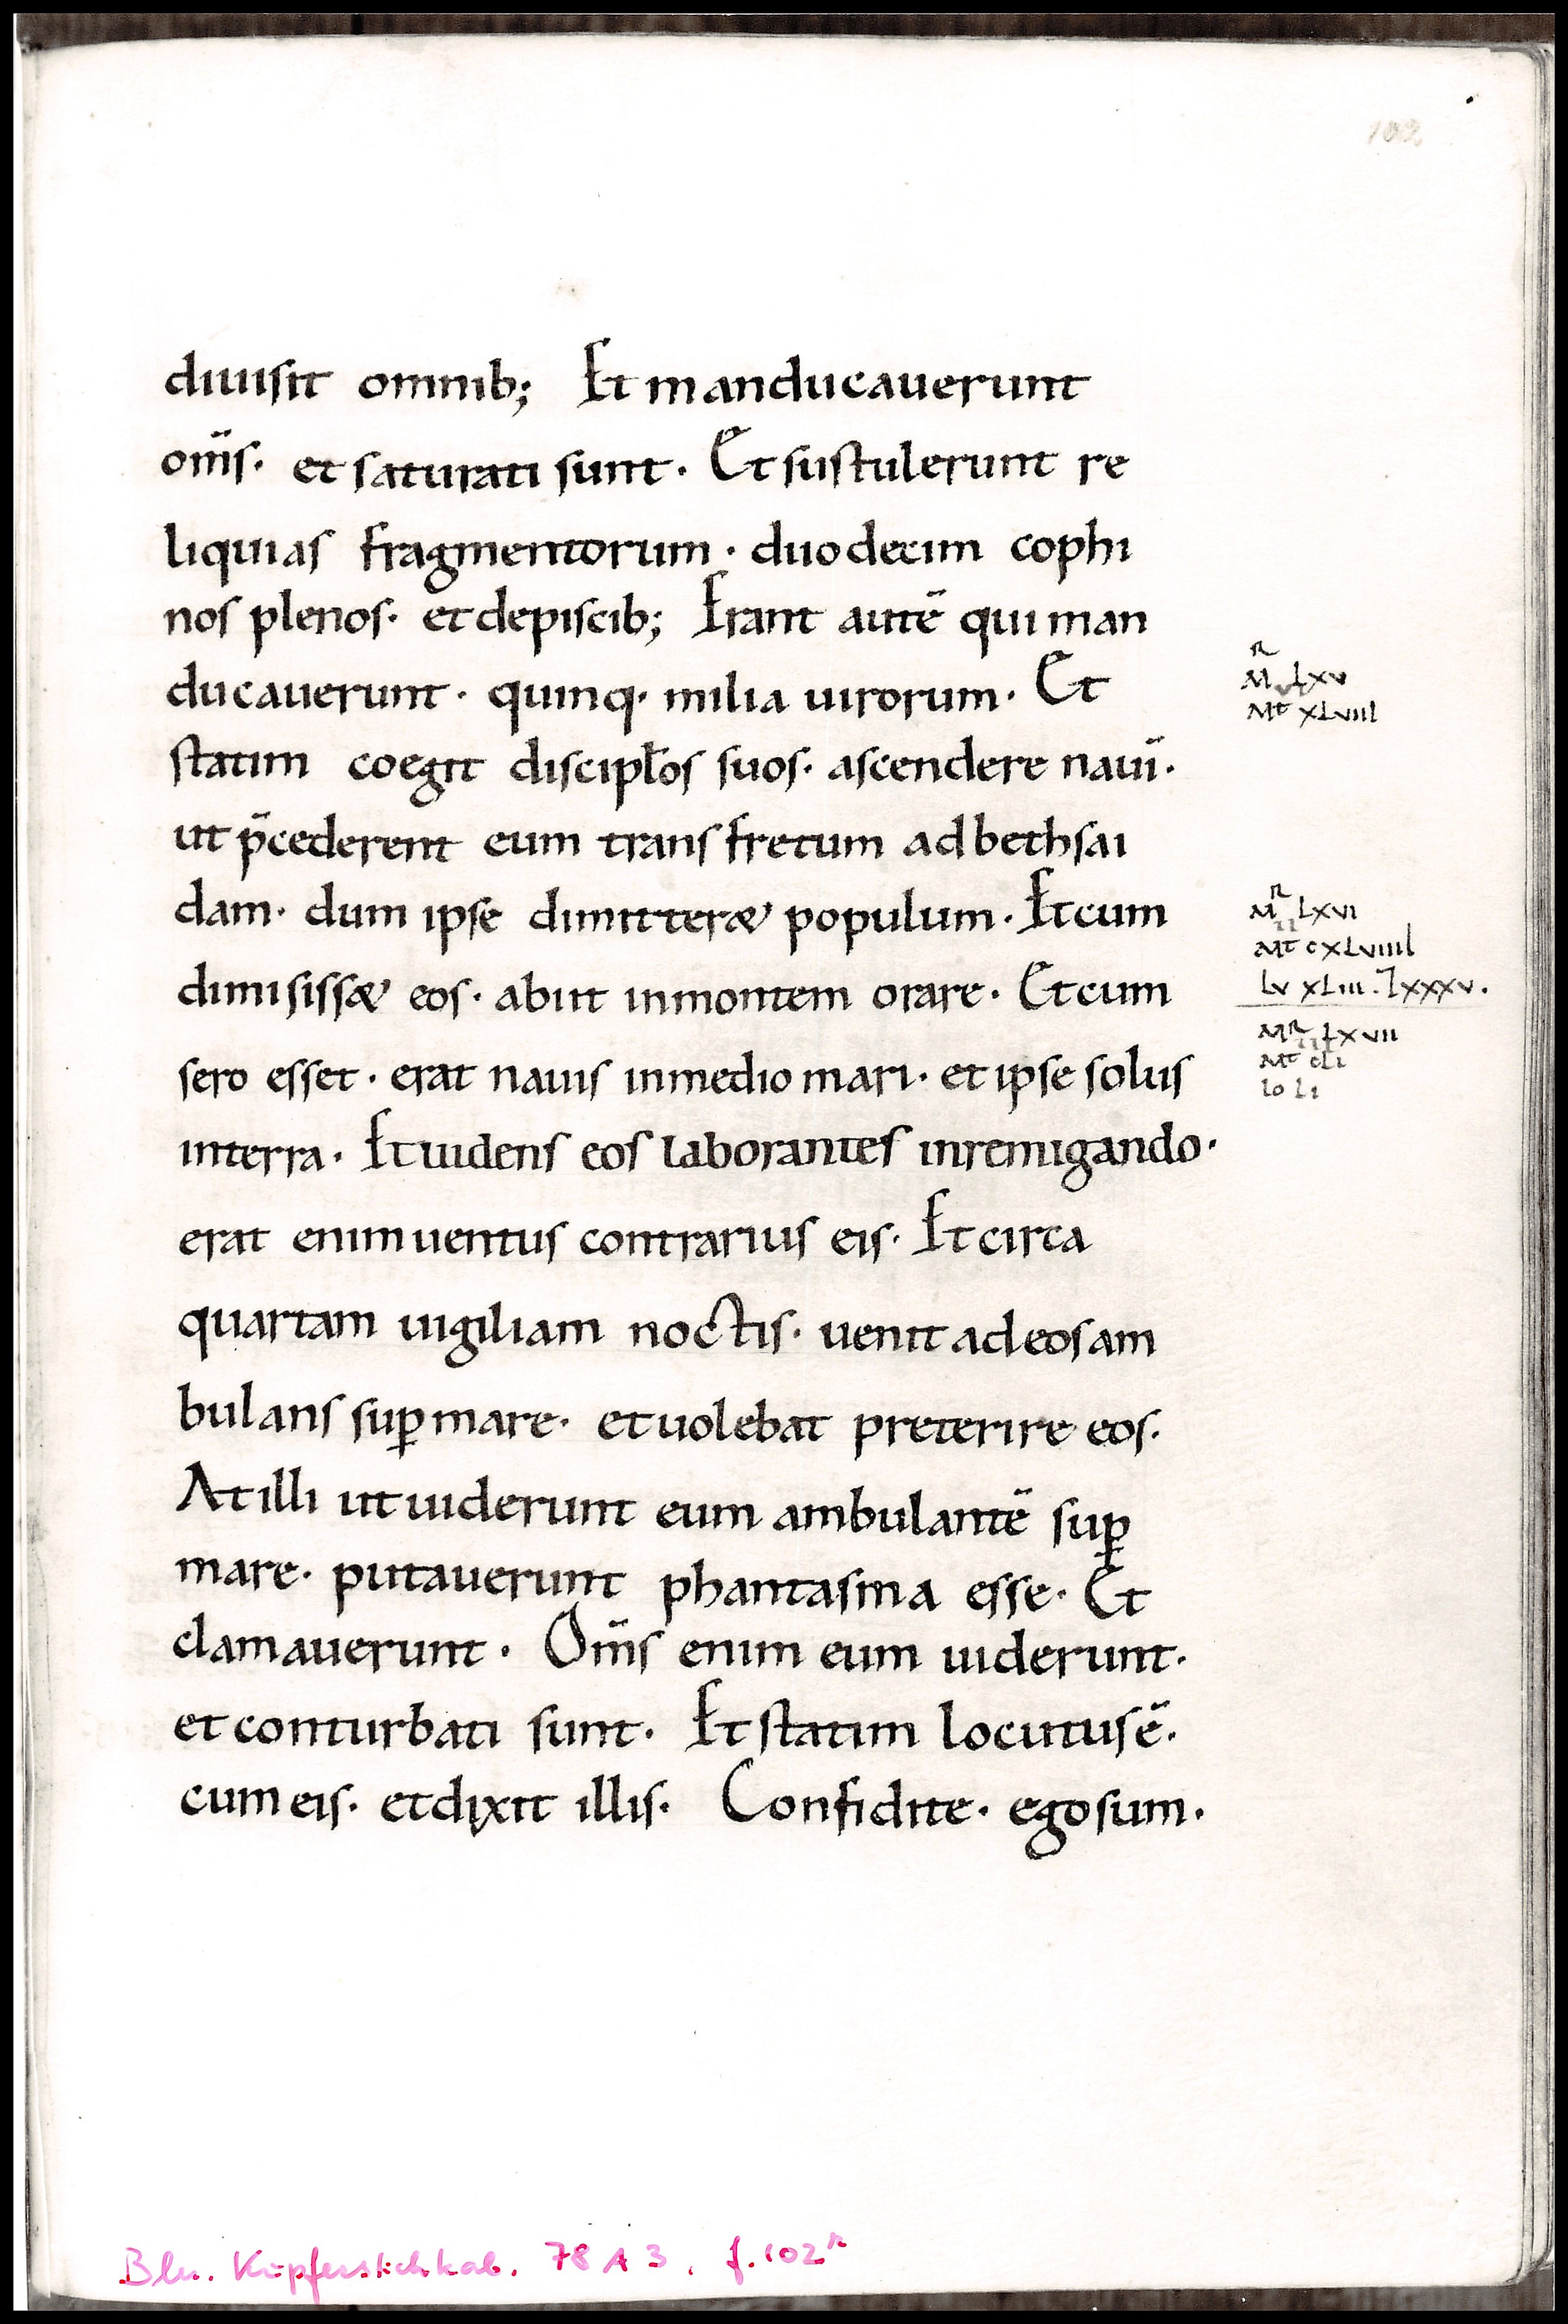 102
diuisit omnib; Et manducauerunt
om̅s· et saturati sunt· Et sustulerunt re
liquias fragmentorum· duodecim cophi
nos plenos· et de piscib; Erant aute̅ qui man
ducauerunt· quinq· milia uirorum· Et
statim coegit discipl̅os suos· ascendere naui̅·
ut p̅cederent eum trans fretum ad bethsai
dam· dum ipse dimitteræ populum· Et cum
dimisissæ eos· abiit in montem orare· Et cum
sero esset· erat nauis in medio mari· et ipse solus
in terra· Et uidens eos laborantes in remigando·
erat enim uentus contrarius eis· Et circa
quartam uigiliam noctis· uenit ad eos am
bulans sup̲ mare· et uolebat preterire eos·
At illi ut uiderunt eum ambulante̅ sup̲
mare· putauerunt phantasma esse· Et
clamauerunt· Om̅s enim eum uiderunt·
et conturbati sunt· Et statim locutus e̅·
cum eis· et dixit illis· Confidite· ego sum·
MR LXV
MT XLVIII
MR LXVI
MT CXLVIIII
LV XLIII. LXXXV.
MR LXVII
MT CLI
IO LI
Bln. Kupferstichkab. 78 A 3, f. 102r